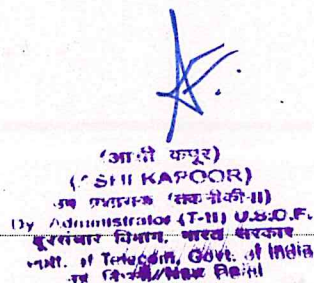 कपूर)
SHI KAPOOR)
उप प्रशासक (तकनीकी-II)
Dy. Administrator (T-II) U.S.O.F.
दूरसंचार विभाग, भारत सरकार
Deptt. of Telecom, Govt. of India
नई दिल्ली/New Delhi